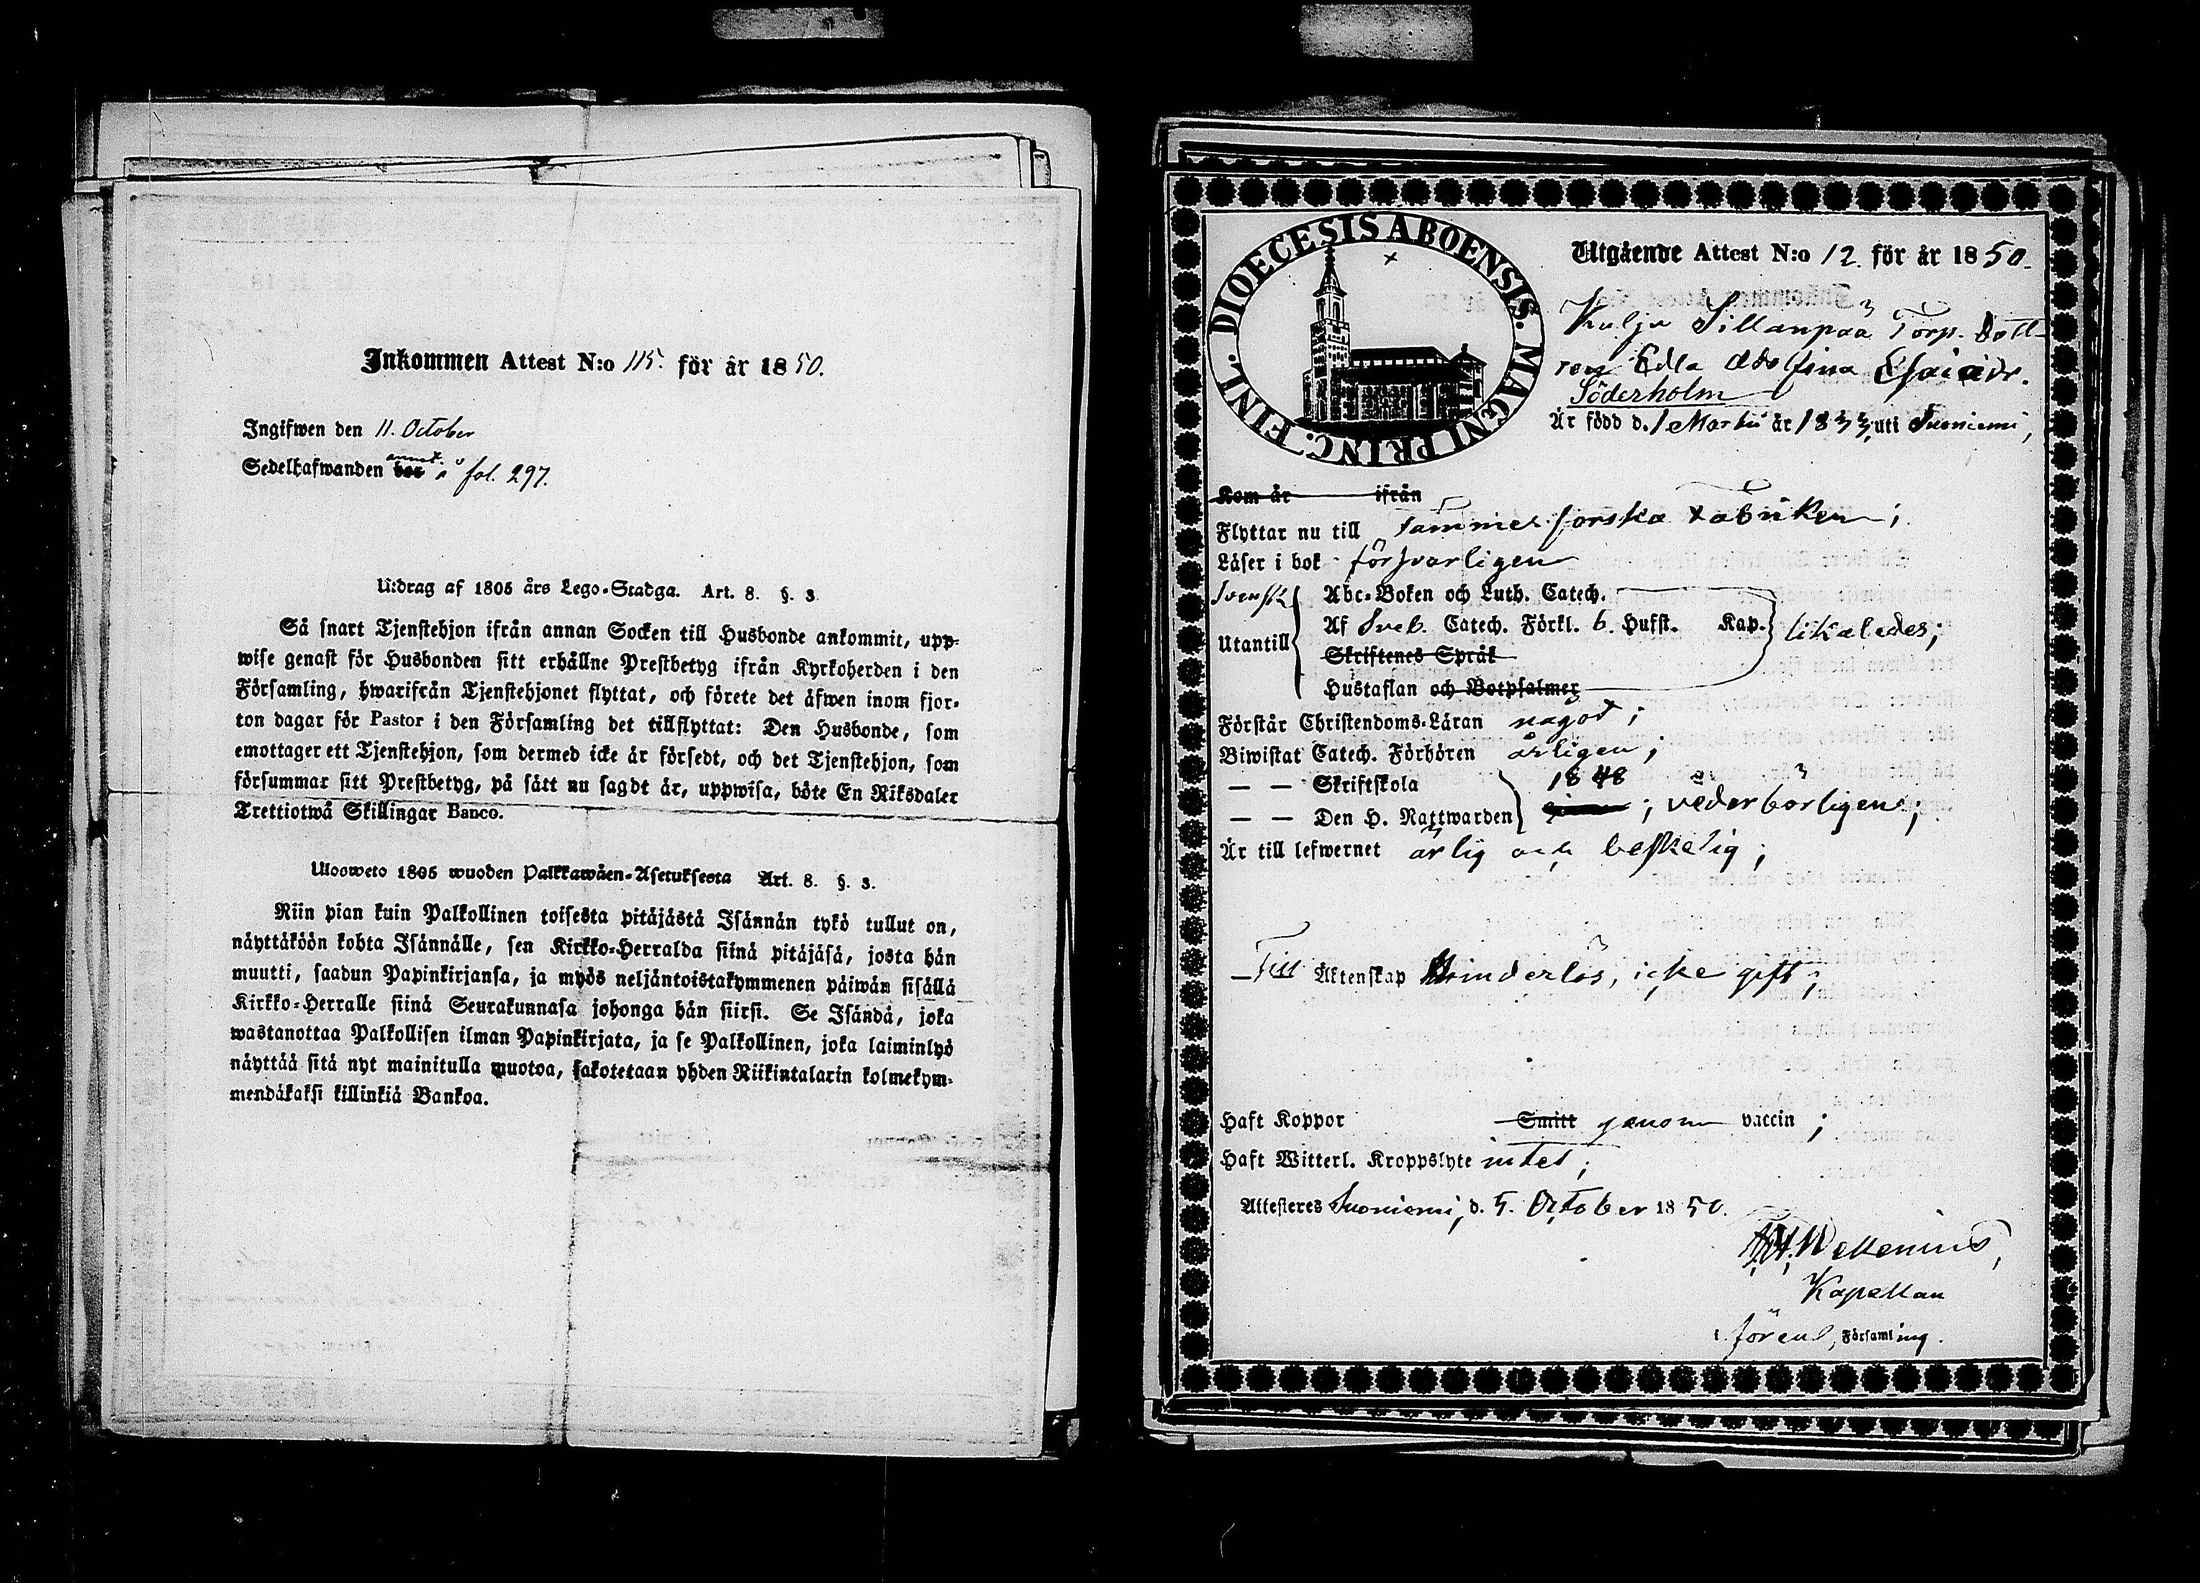 Inkommen Attest N:o 115. för år 1850.
Ingifwen den 11. October
Sedelhafwanden bor annot. å fol. 297.
Utdrag af 1805 års Lego-Stadga. Art. 8. §. 3.
Så snart Tjenstehjon ifrån annan Socken till Husbonde ankommit, upp-
wise genast för Husbonden sitt erhållne Prestbetyg ifrån Kyrkoherden i den
Församling, hwarifrån Tjenstehjonet flyttat, och förete det äfwen inom fjor-
ton dagar för Pastor i den Församling det tillflyttat: Den Husbonde, som
emottager ett Tjenstehjon, som dermed icke är försedt, och det Tjenstehjon, som
försummar sitt Prestbetyg, på sätt nu sagdt är, uppwisa, böte En Riksdaler
Trettiotwå Skillingar Banco.
Uloosweto 1805 wuoden Palkkawäen-Asetuksesta Art. 8. §. 3.
Niin pian kuin Palkollinen toisesta pitäjästä Isännän tykö tullut on,
näyttäköön kohta Isännälle, sen Kirkko-Herralda siinä pitäjäsä, josta hän
muutti, saadun Papinkirjansa, ja myös neljäntoistakymmenen päiwän sisällä
Kirkko-Herralle siinä Seurakunnasa johonga hän siirsi. Se Isändä, joka
wastanottaa Palkollisen ilman Papinkirjata, ja se Palkollinen, joka laiminlyö
näyttää sitä nyt mainitulla muotoa, sakotetaan yhden Riikintalarin kolmekym-
mendäkaksi killinkiä Bankoa.
DIOECESIS ABOENSIS. MAGNI PRINC. FINL.
Utgående Attest N:o 12. för år 1850.
Kulju Sillanpää Torp. Dott-
ren Edla Adolfina Esaiædr.
Söderholm
Är född d. 1 Martii år 1833, uti Suoniemi,
Kom år ifrån
Flyttar nu till Tammerforska Fabriken;
Läser i bok försvarligen
Svensk
Utantill
Abc-Boken och Luth. Catech.
Af Sveb. Catech. Förkl. 6. Hufst. Kap. likaledes;
Skriftenes Språk
Hustaflan och Botpsalmer
Förstår Christendoms-Läran något;
Biwistat Catech. Förhören årligen;
— — Skriftskola 1848
— — Den H. Nattwarden ; vederbörligen;
Är till lefwernet ärlig och beskedlig;
Till Äktenskap hinderlös, icke gift;
Haft Koppor Smitt genom vaccin;
Haft Witterl. Kroppslyte intet;
Attesteres Suoniemi, d. 5. October 1850.
Wellenius,
Kapellan
i förent, Församling.